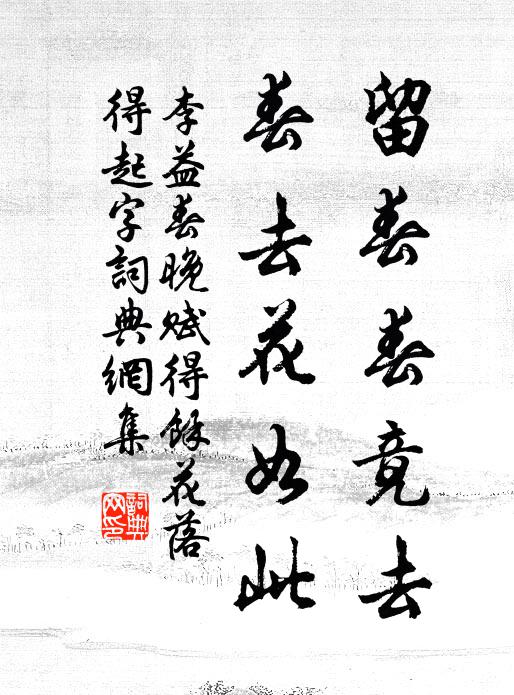 留春春竟去
春去花如此
李益春晚賦得餘花落
得起字詞典網集
詞典
网印